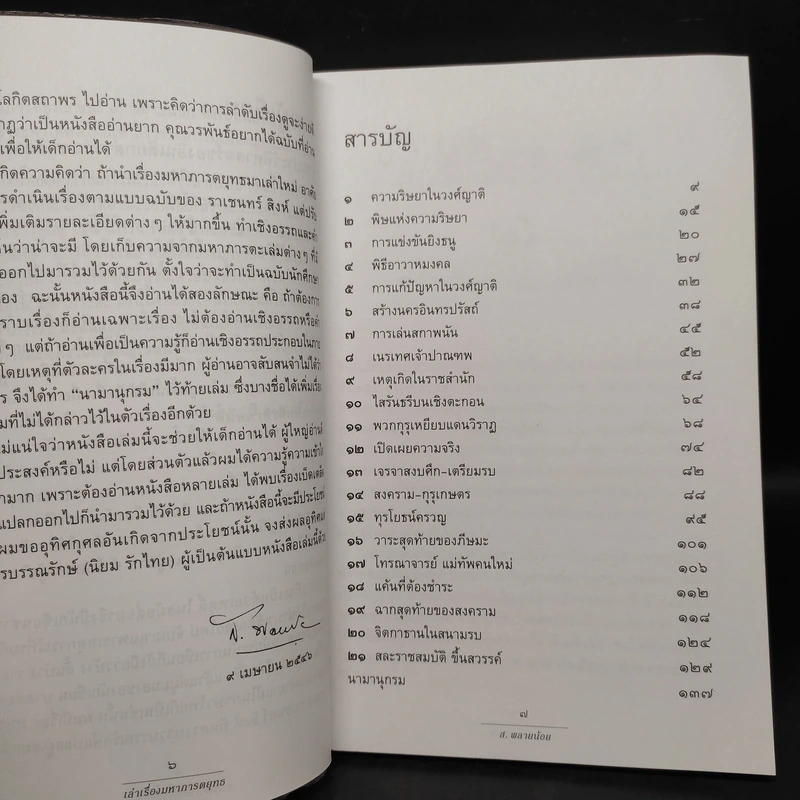 โลกิตสถาพร ไปอ่าน เพราะคิดว่าการลำดับเรื่องดูจะง่าย
กฏว่าเป็นหนังสืออ่านยาก คุณวรพันธ์อยากได้ฉบับที่อ่าน
เพื่อให้เด็กอ่านได้
กิดความคิดว่า ถ้านำเรื่องมหาภารตยุทธมาเล่าใหม่ อาศัย
รดำเนินเรื่องตามแบบฉบับของ ราเชนทร์ สิงห์ แต่ปรับ
พิ่มเติมรายละเอียดต่างๆ ให้มากขึ้น ทำเชิงอรรถและคำ
ห็นว่าน่าจะมี โดยเก็บความจากมหาภารตะเล่มต่างๆ ที่มี
ออกไปมารวมไว้ด้วยกัน ตั้งใจว่าจะทำเป็นฉบับนักศึกษา
อง ฉะนั้นหนังสือนี้จึงอ่านได้สองลักษณะ คือ ถ้าต้องการ
ราบเรื่องก็อ่านเฉพาะเรื่อง ไม่ต้องอ่านเชิงอรรถหรือคำ
ๆ แต่ถ้าอ่านเพื่อเป็นความรู้ก็อ่านเชิงอรรถประกอบในภาย
โดยเหตุที่ตัวละครในเรื่องมีมาก ผู้อ่านอาจสับสนจำไม่ได้ว่า
ร จึงได้ทำ “นามานุกรม” ไว้ท้ายเล่ม ซึ่งบางชื่อได้เพิ่มเรื่อง
มที่ไม่ได้กล่าวไว้ในตัวเรื่องอีกด้วย
ม่แน่ใจว่าหนังสือเล่มนี้จะช่วยให้เด็กอ่านได้ ผู้ใหญ่อ่านดี
ประสงค์หรือไม่ แต่โดยส่วนตัวแล้วผมได้ความรู้ความเข้าใจ
ามาก เพราะต้องอ่านหนังสือหลายเล่ม ได้พบเรื่องเบ็ดเตล็ด
แปลกออกไปก็นำมารวมไว้ด้วย และถ้าหนังสือนี้จะมีประโยชน์
ผมขออุทิศกุศลอันเกิดจากประโยชน์นั้น จงส่งผลอุทิศแด่
รบรรณรักษ์ (นิยม รักไทย) ผู้เป็นต้นแบบหนังสือเล่มนี้ด้วย
๙ เมษายน ๒๕๔๖
๖
เล่าเรื่องมหาภารตยุทธ
สารบัญ
๑ ความริษยาในวงศ์ญาติ ๙
๒ พิษแห่งความริษยา ๑๕
๓ การแข่งขันยิงธนู ๒๐
๔ พิธีอาวาหมงคล ๒๗
๕ การแก้ปัญหาในวงศ์ญาติ ๓๒
๖ สร้างนครอินทรปรัสถ์ ๓๘
๗ การเล่นสกาพนัน ๔๕
๘ เนรเทศเจ้าปาณฑพ ๕๒
๙ เหตุเกิดในราชสำนัก ๕๘
๑๐ ไสรันธรีบนเชิงตะกอน ๖๔
๑๑ พวกกุรุเหยียบแดนวิราฏ ๖๘
๑๒ เปิดเผยความจริง ๗๔
๑๓ เจรจาสงบศึก-เตรียมรบ ๘๒
๑๔ สงคราม-กุรุเกษตร ๘๘
๑๕ ทุรโยธน์ครวญ ๙๕
๑๖ วาระสุดท้ายของภีษมะ ๑๐๑
๑๗ โทรณาจารย์ แม่ทัพคนใหม่ ๑๐๖
๑๘ แค้นที่ต้องชำระ ๑๑๒
๑๙ ฉากสุดท้ายของสงคราม ๑๑๘
๒๐ จิตกาธานในสนามรบ ๑๒๔
๒๑ สละราชสมบัติ ขึ้นสวรรค์ ๑๒๙
นามานุกรม ๑๓๗
๗
ส. พลายน้อย